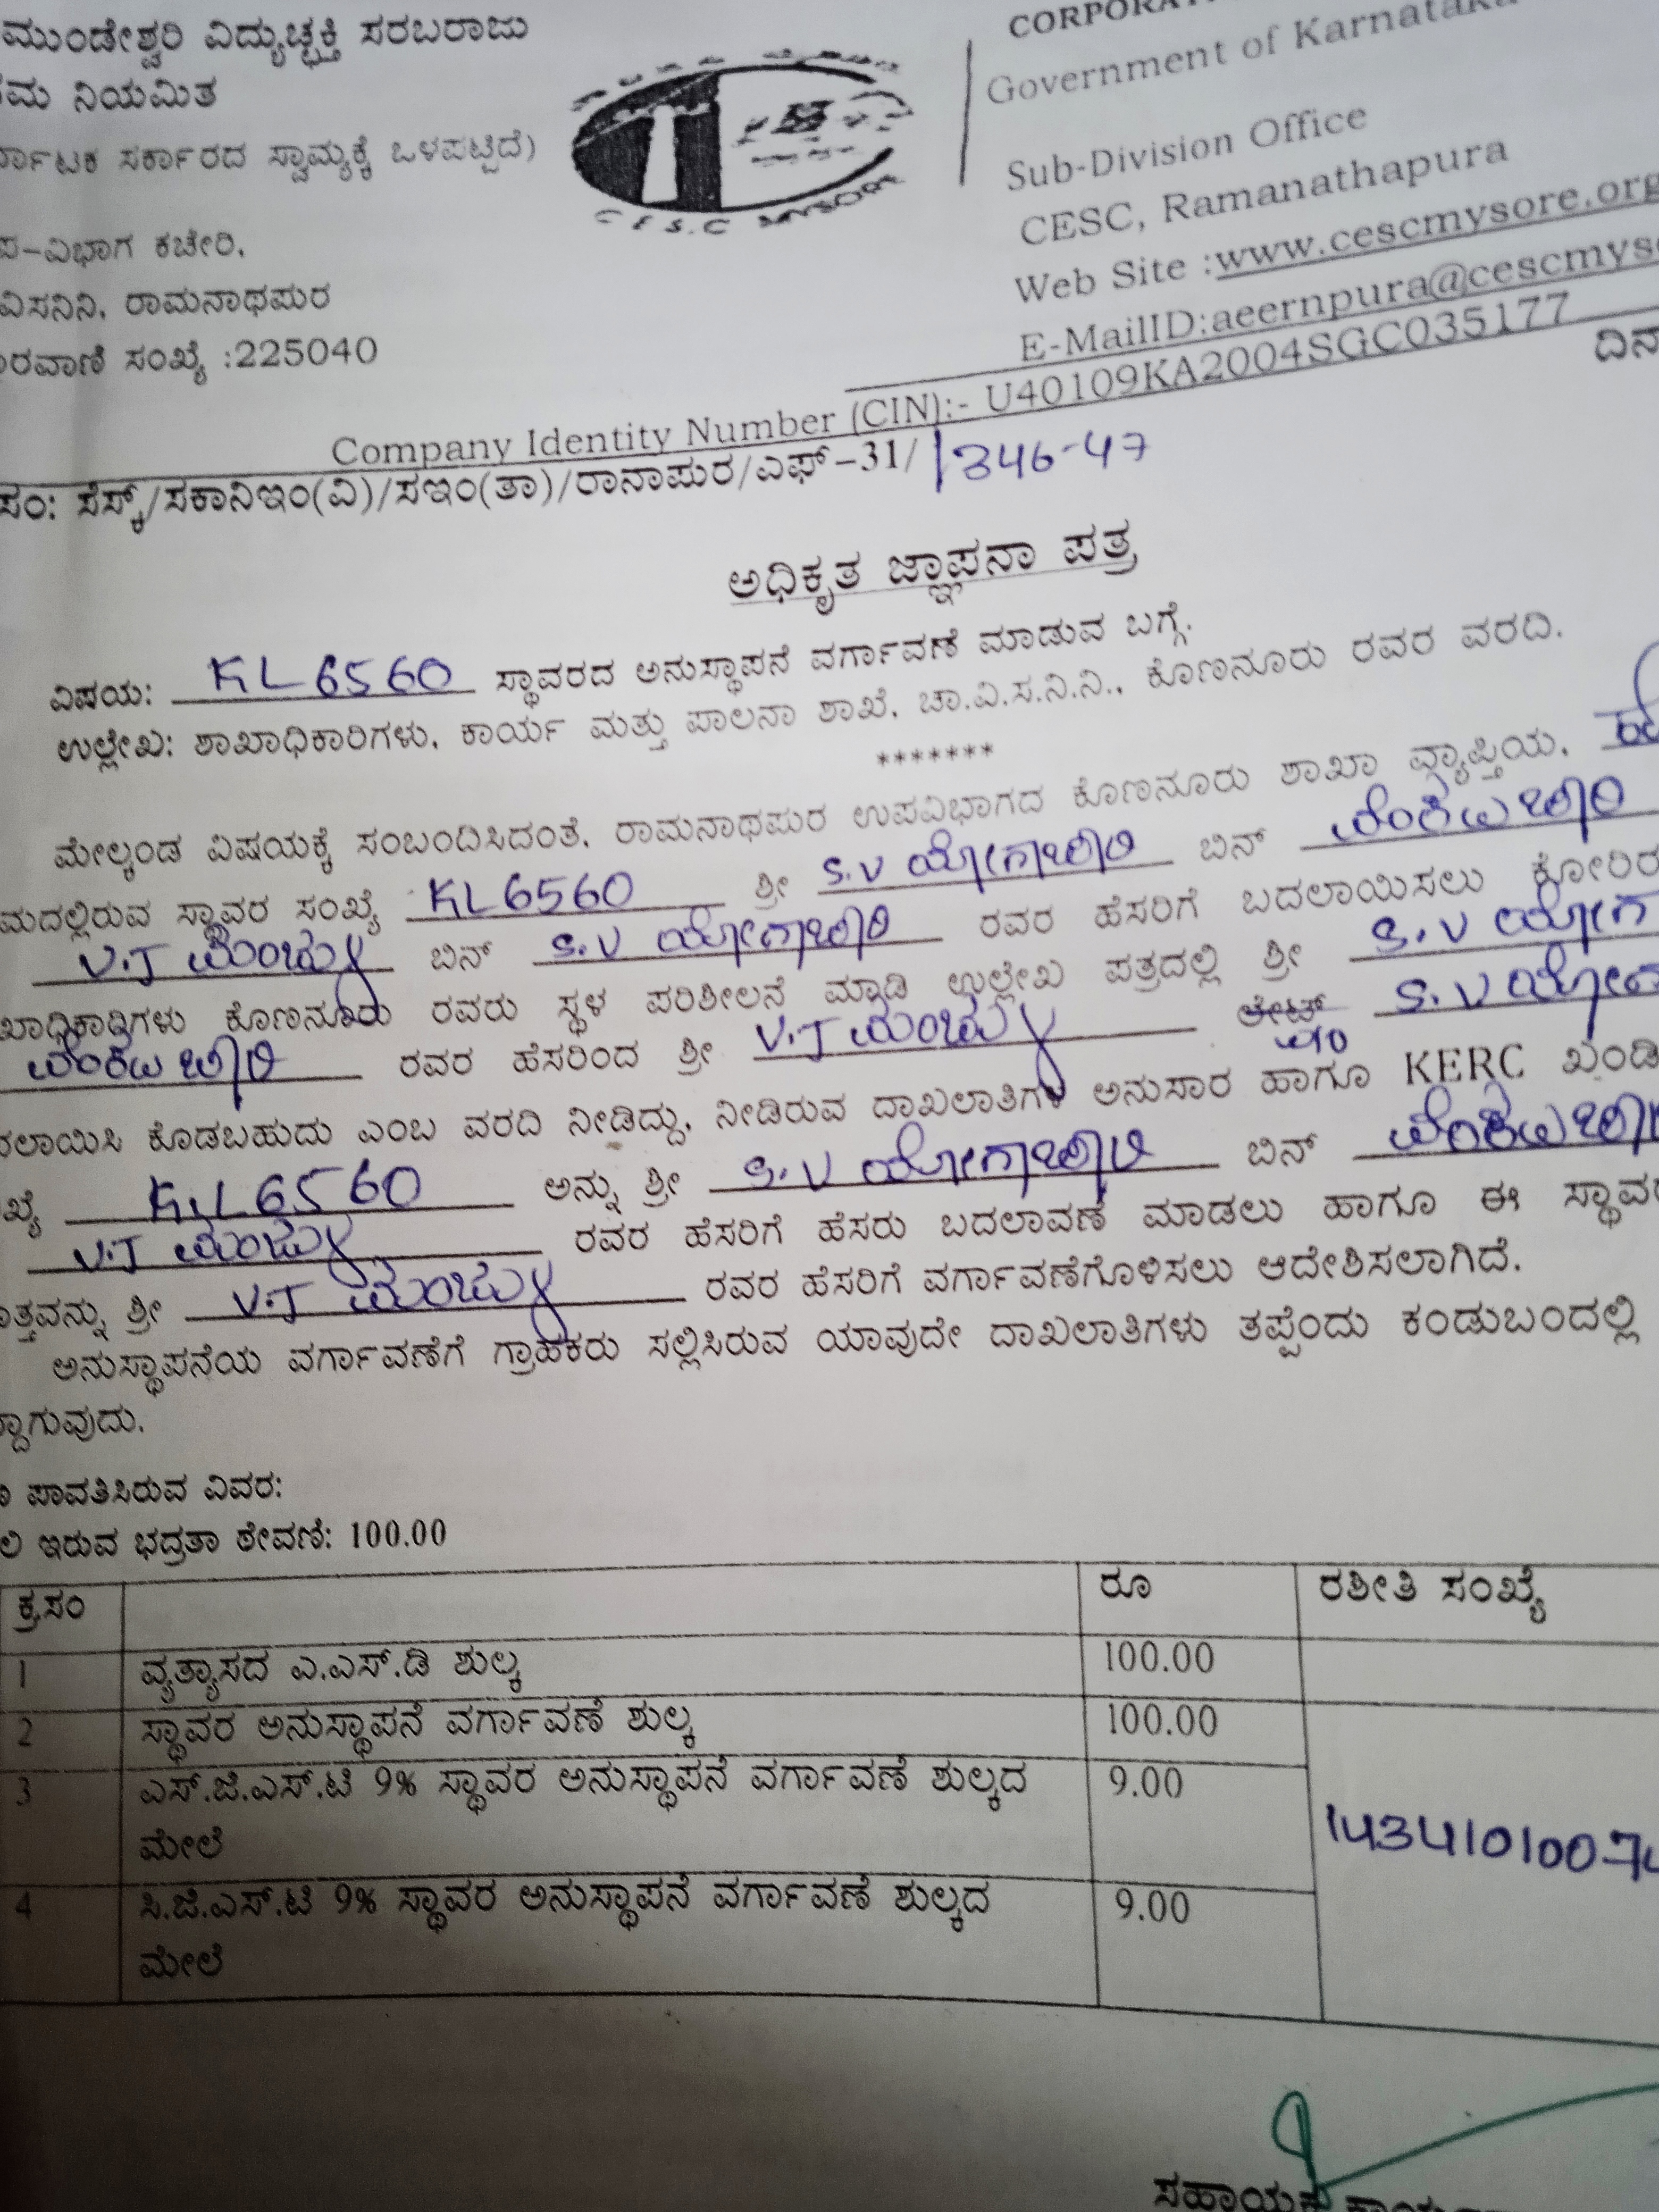 ಮುಂಡೇಶ್ವರಿ ವಿದ್ಯುಚ್ಛಕ್ತಿ ಸರಬರಾಜು
ನಿಯಮಿತ
ಸರ್ಕಾರದ ಸ್ವಾಮ್ಯಕ್ಕೆ ಒಳಪಟ್ಟಿದೆ)
ಪ-ವಿಭಾಗ ಕಚೇರಿ,
ವಿಸನಿನಿ, ರಾಮನಾಥಪುರ
ರವಾಣಿ ಸಂಖ್ಯೆ :225040
C E S.C MYSORE
Government of Karnataka
Sub-Division Office
CESC, Ramanathapura
Web Site :www.cescmysore.org
E-MailID:aeernpura@cescmys
Company Identity Number (CIN):- U40109KA2004SGC035177
ಸಂ: ಸೆಸ್ಕ್/ಸಕಾನಿಇಂ(ವಿ)/ಸಇಂ(ತಾ)/ರಾನಾಪುರ/ಎಫ್-31/ 1346-47
ಅಧಿಕೃತ ಜ್ಞಾಪನಾ ಪತ್ರ
ವಿಷಯ: KL 6560 ಸ್ಥಾವರದ ಅನುಸ್ಥಾಪನೆ ವರ್ಗಾವಣೆ ಮಾಡುವ ಬಗ್ಗೆ.
ಉಲ್ಲೇಖ: ಶಾಖಾಧಿಕಾರಿಗಳು, ಕಾರ್ಯ ಮತ್ತು ಪಾಲನಾ ಶಾಖೆ, ಚಾ.ವಿ.ಸ.ನಿ.ನಿ., ಕೊಣನೂರು ರವರ ವರದಿ.
*******
ಮೇಲ್ಕಂಡ ವಿಷಯಕ್ಕೆ ಸಂಬಂದಿಸಿದಂತೆ, ರಾಮನಾಥಪುರ ಉಪವಿಭಾಗದ ಕೊಣನೂರು ಶಾಖಾ ವ್ಯಾಪ್ತಿಯ,
ಮದಲ್ಲಿರುವ ಸ್ಥಾವರ ಸಂಖ್ಯೆ KL 6560 ಶ್ರೀ S.V ಯೋಗಾಚಾರಿ ಬಿನ್ ವೆಂಕಟಚಾರಿ
V.J ಮಂಜು ಬಿನ್ S.V ಯೋಗಾಚಾರಿ ರವರ ಹೆಸರಿಗೆ ಬದಲಾಯಿಸಲು ಕೋರಿರ
ಖಾಧಿಕಾರಿಗಳು ಕೊಣನೂರು ರವರು ಸ್ಥಳ ಪರಿಶೀಲನೆ ಮಾಡಿ ಉಲ್ಲೇಖ ಪತ್ರದಲ್ಲಿ ಶ್ರೀ S.V ಯೋಗ
ವೆಂಕಟಚಾರಿ ರವರ ಹೆಸರಿಂದ ಶ್ರೀ V.J ಮಂಜು S.V ಯೋಗ
ಲಾಯಿಸಿ ಕೊಡಬಹುದು ಎಂಬ ವರದಿ ನೀಡಿದ್ದು, ನೀಡಿರುವ ದಾಖಲಾತಿಗಳ ಅನುಸಾರ ಹಾಗೂ KERC ಖಂಡಿ
ಖ್ಯೆ KL 6560 ಅನ್ನು ಶ್ರೀ S.V ಯೋಗಾಚಾರಿ ಬಿನ್ ವೆಂಕಟಚಾರಿ
V.J ಮಂಜು ರವರ ಹೆಸರಿಗೆ ಹೆಸರು ಬದಲಾವಣೆ ಮಾಡಲು ಹಾಗೂ ಈ ಸ್ಥಾವರ
ತ್ತವನ್ನು ಶ್ರೀ V.J ಮಂಜು ರವರ ಹೆಸರಿಗೆ ವರ್ಗಾವಣೆಗೊಳಿಸಲು ಆದೇಶಿಸಲಾಗಿದೆ.
ಅನುಸ್ಥಾಪನೆಯ ವರ್ಗಾವಣೆಗೆ ಗ್ರಾಹಕರು ಸಲ್ಲಿಸಿರುವ ಯಾವುದೇ ದಾಖಲಾತಿಗಳು ತಪ್ಪೆಂದು ಕಂಡುಬಂದಲ್ಲಿ
ದ್ದಾಗುವುದು.
ಪಾವತಿಸಿರುವ ವಿವರ:
ಲಿ ಇರುವ ಭದ್ರತಾ ಠೇವಣಿ: 100.00
ಕ್ರ.ಸಂ ರೂ ರಶೀತಿ ಸಂಖ್ಯೆ
1 ವ್ಯತ್ಯಾಸದ ಎ.ಎಸ್.ಡಿ ಶುಲ್ಕ 100.00
2 ಸ್ಥಾವರ ಅನುಸ್ಥಾಪನೆ ವರ್ಗಾವಣೆ ಶುಲ್ಕ 100.00
3 ಎಸ್.ಜಿ.ಎಸ್.ಟಿ 9% ಸ್ಥಾವರ ಅನುಸ್ಥಾಪನೆ ವರ್ಗಾವಣೆ ಶುಲ್ಕದ 9.00
ಮೇಲೆ
4 ಸಿ.ಜಿ.ಎಸ್.ಟಿ 9% ಸ್ಥಾವರ ಅನುಸ್ಥಾಪನೆ ವರ್ಗಾವಣೆ ಶುಲ್ಕದ 9.00
ಮೇಲೆ
ಸಹಾಯಕ